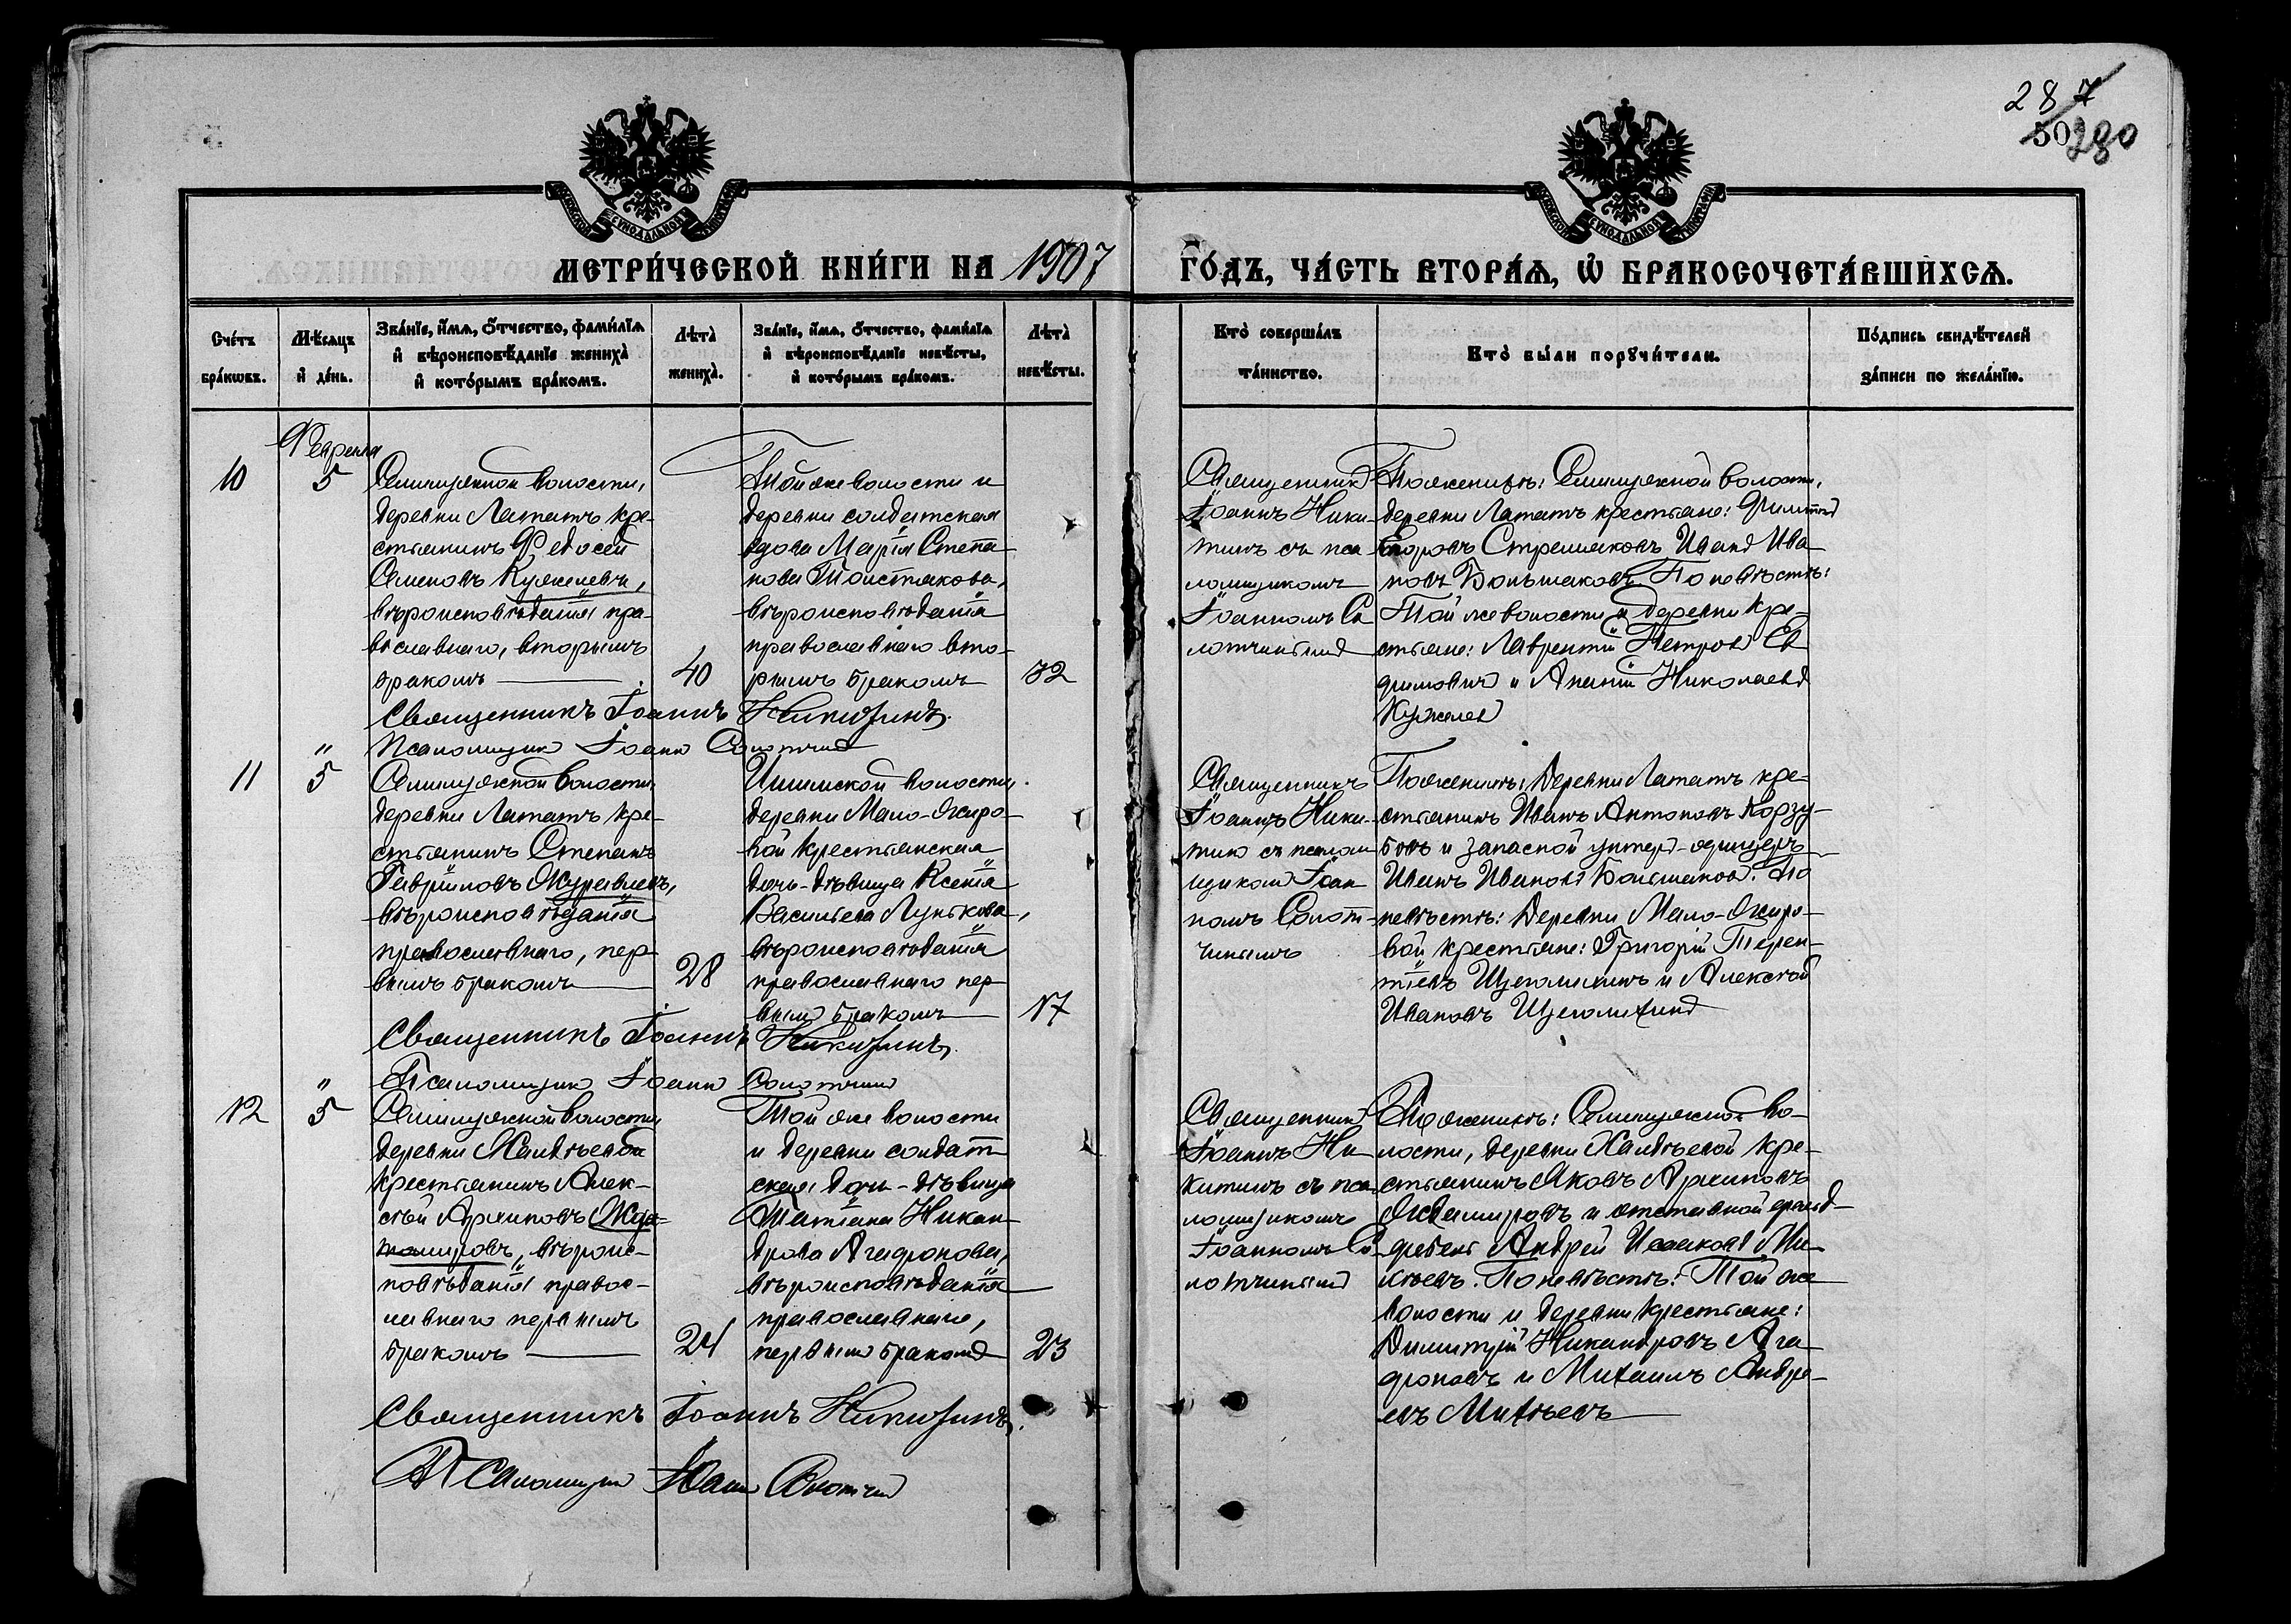 28 7
50 280
МЕТРИ́ЧЕСКОЙ КНИ́ГИ НА 1907 ГО́ДЪ, ЧА́СТЬ ВТОРА́Я, Ѡ҆ БРАКОСОЧЕТА́ВШИХСЯ.
Сче́тъ
бра́кѡвъ.
Мѣ́сяцъ
и҆ де́нь.
Зва́нїе, и҆́мя, ѻ҆́тчество, фами́лїя
и҆ вѣроисповѣ́данїе жениха̀
и҆ кото́рымъ бра́комъ.
Лѣта̀
жениха̀.
Зва́нїе, и҆́мя, ѻ҆́тчество, фами́лїя
и҆ вѣроисповѣ́данїе невѣ́сты,
и҆ кото́рымъ бра́комъ.
Лѣта̀
невѣ́сты.
Кто̀ соверша́лъ
та́инство.
Кто̀ бы́ли порꙋчи́тели.
По́дпись свидѣ́телей
за́писи по жела́нїю.
Февраля
10
5
волости,
деревни Лататъ кре-
стьянинъ Федосей
Семеновъ Кужелевъ,
вѣроисповѣданія пра-
вославнаго, вторымъ
бракомъ
40
Той же волости и
деревни солдатская
вдова Марія Степа-
нова Толстякова,
вѣроисповѣданія
православнаго вто-
рымъ бракомъ
32
Священникъ
Іоаннъ Ники-
тинъ съ пса-
ломщикомъ
Іоанномъ Со-
лотчинымъ
По женихѣ: волости,
деревни Лататъ крестьяне:
Егоровъ Стрельяковъ Иванъ Ива-
новъ Большаковъ По невѣстѣ:
Той же волости и деревни кре-
стьяне: Лаврентій Петровъ Ев-
фимовичъ и Ананій Николаевъ
Кужелев
Священникъ Іоаннъ Никитинъ.
Псаломщикъ Іоаннъ Солотчинъ
11
" 5
волости,
деревни Лататъ кре-
стьянинъ Степанъ
Гавріиловъ Журавлевъ,
вѣроисповѣданія
православнаго, пер-
вымъ бракомъ
28
Ишимской волости
деревни Мало-Жиро-
вой крестьянская
дочь-дѣвица Ксенія
Васильева Лунькова,
вѣроисповѣданія
православнаго пер-
вымъ бракомъ
17
Священникъ
Іоаннъ Ники-
тинъ съ псалом-
щиком Іоан-
номъ Солот-
чинымъ
По женихѣ: Деревни Лататъ кре-
стьянинъ Иванъ Антоновъ Корзу-
новъ и запасной унтеръ-офицеръ
Иванъ Ивановъ Большаковъ. По
невѣстѣ: Деревни Мало-Жиро-
вой крестьяне: Григорій Терен-
тіевъ Щеголихинъ и Алексѣй
Ивановъ Щеголихинъ
Священникъ Іоаннъ Никитинъ.
Псаломщикъ Іоаннъ Солотчинъ
12
" 5
волости
деревни Халдѣевой
крестьянинъ Алек-
сѣй Архиповъ
вѣроис-
повѣданія правос-
лавнаго первымъ
бракомъ
24
Той же волости
и деревни солдат-
ская дочь-дѣвица
Татіана Никан-
дрова Агафонова,
вѣроисповѣданія
православнаго,
первымъ бракомъ
23
Священникъ
Іоаннъ Ни-
китинъ съ пса-
ломщикомъ
Іоанномъ Со-
лотчинымъ
По женихѣ: во-
лости, деревни Халдѣевой кре-
стьянинъ Яковъ Архиповъ
и отставной фельд-
фебель Андрей Исаковъ Ми-
хѣевъ. По невѣстѣ: Той же
волости и деревни крестьяне:
Димитрій Никандровъ Ага-
фоновъ и Михаилъ Андре-
евъ Михѣевъ
Священникъ Іоаннъ Никитинъ.
Псаломщикъ Іоаннъ Солотчинъ